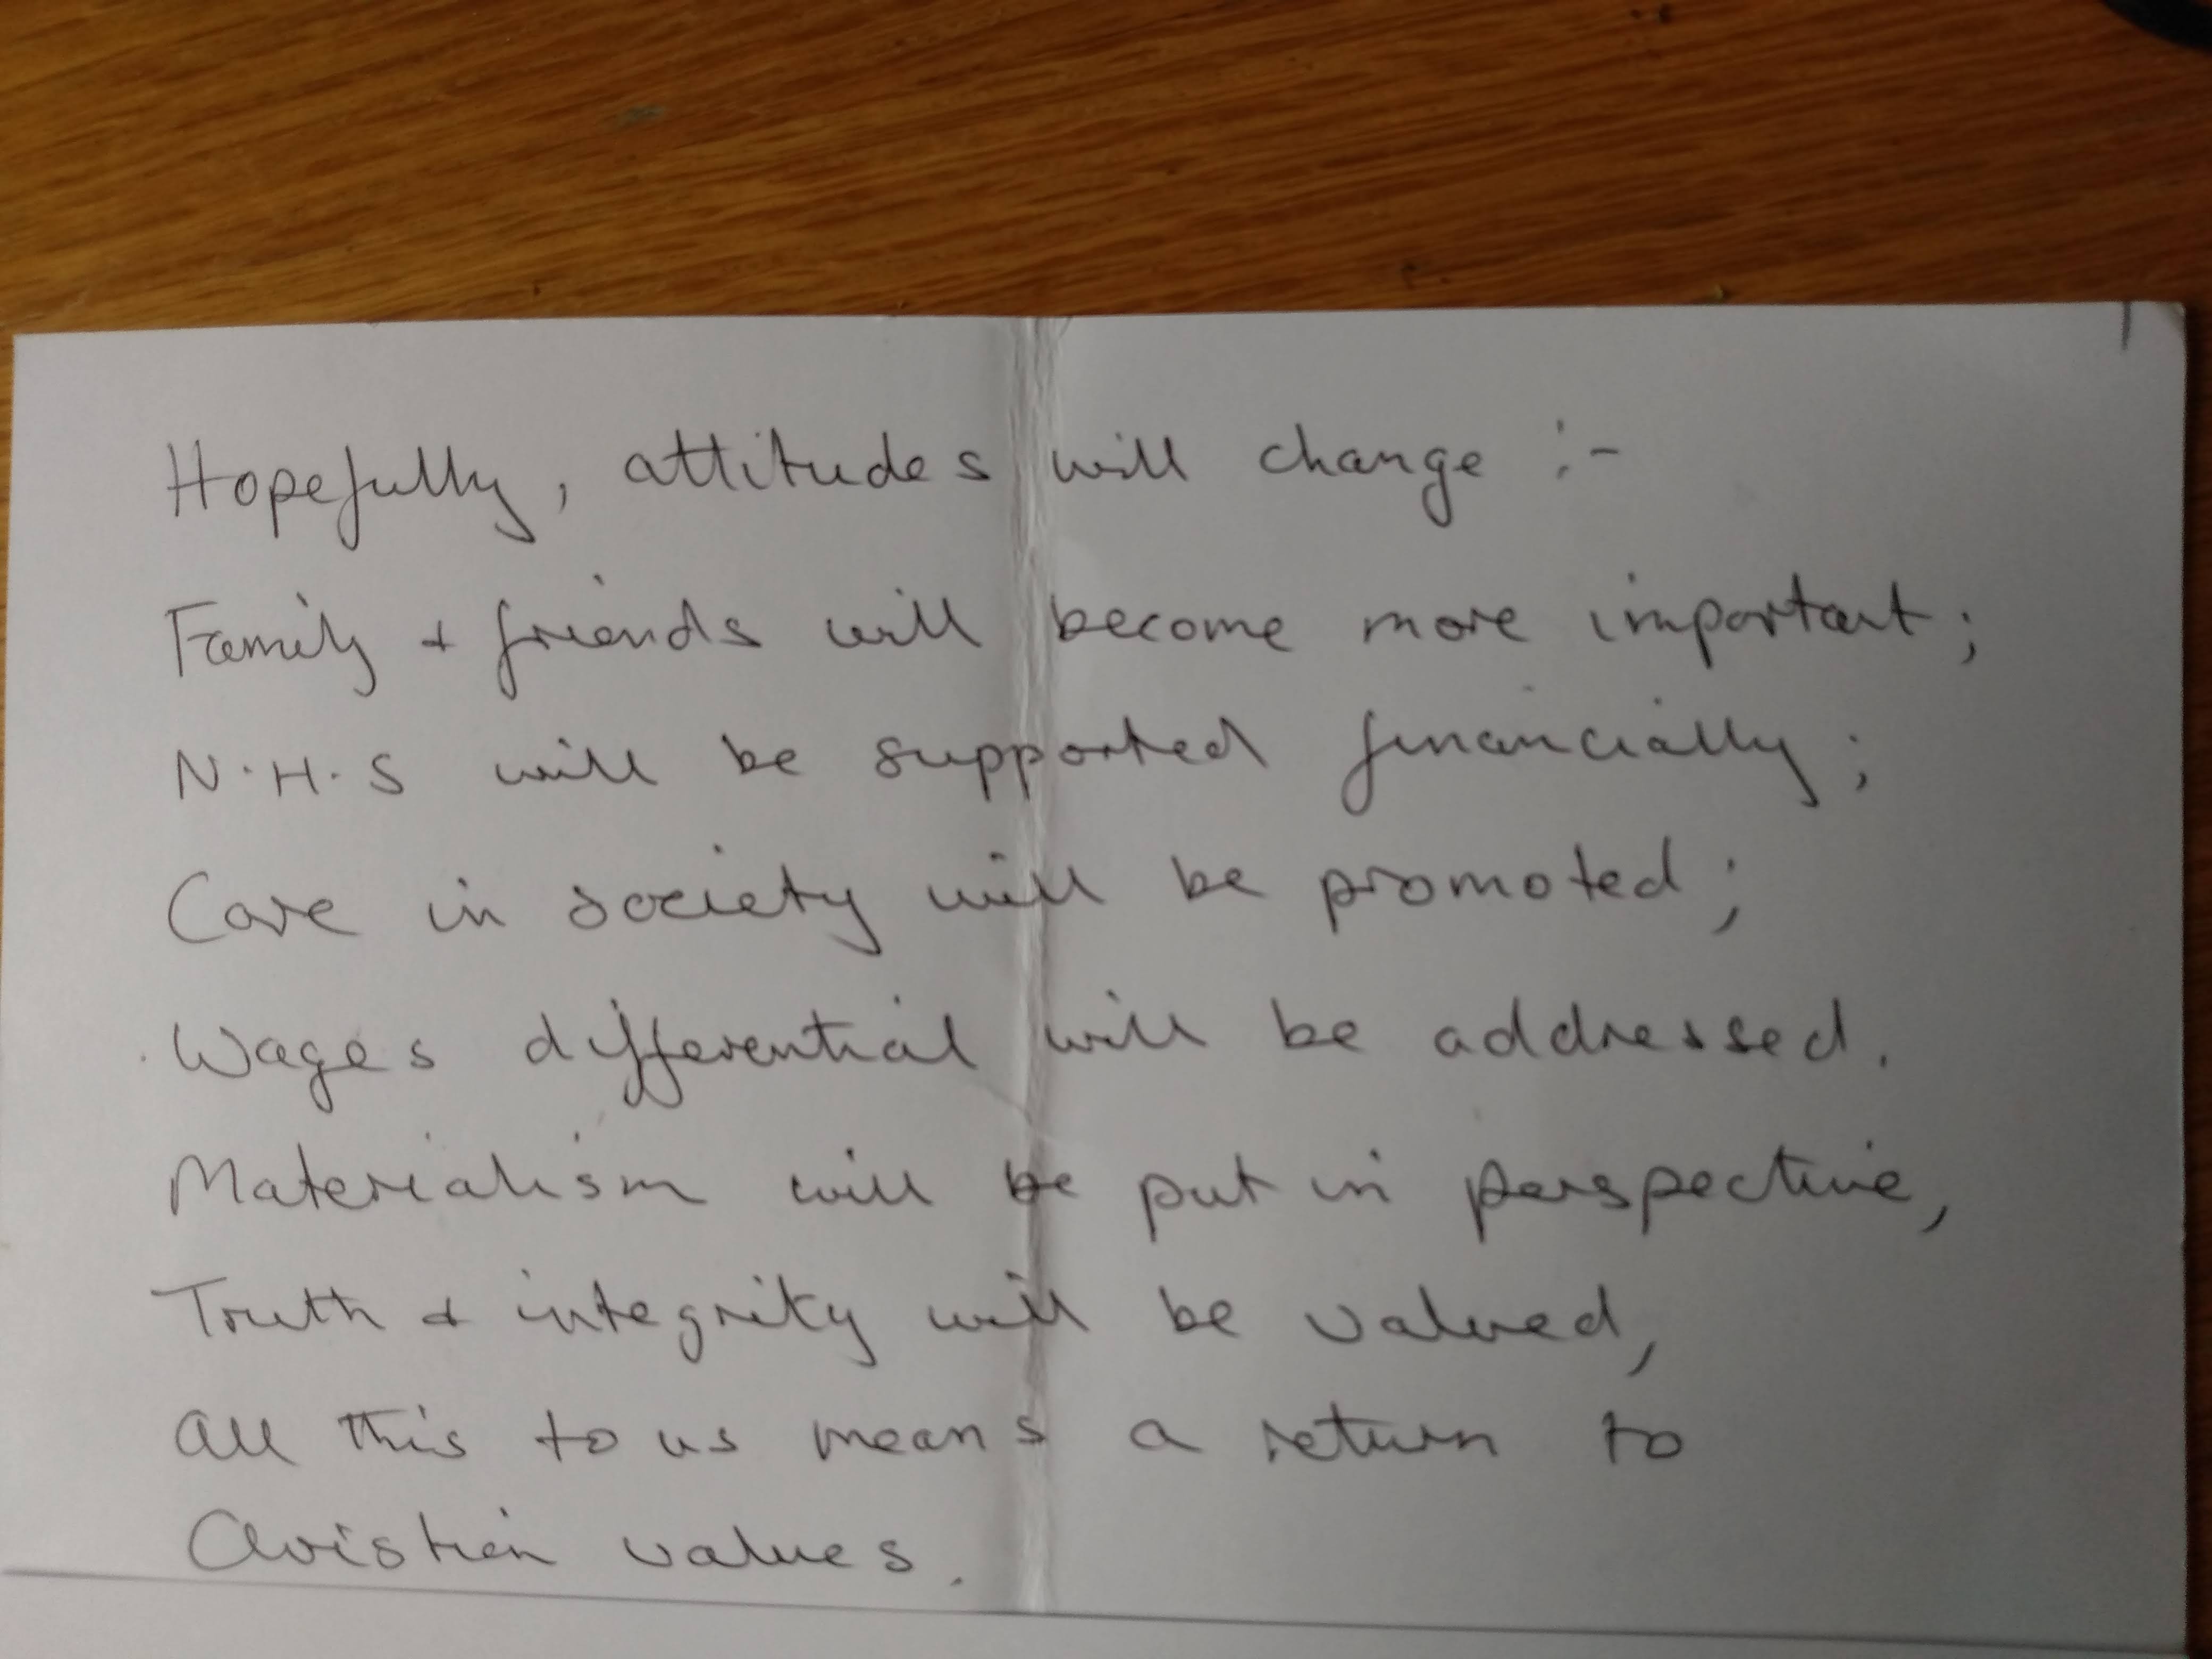 Hopefully, attitudes will change :-
Family + friends will become more important;
N.H.S will be supported financially;
Care in society will be promoted;
Wages differential will be addressed.
Materialism will be put in perspective,
Truth + integrity will be valued,
All this to us means a return to
Christian values.